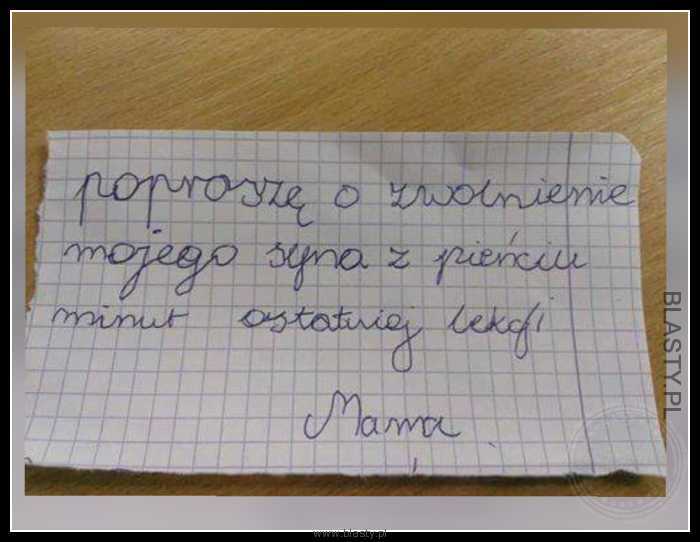 poproszę o zwolnienie
mojego syna z pieńciu
minut ostatniej lekcji
Mama
BLASTY.PL
www.blasty.pl